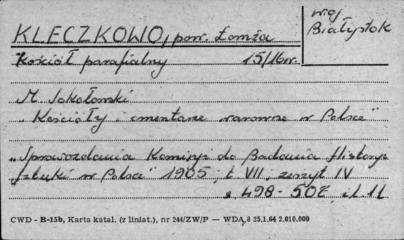 KLECZKOWO, pow. Łomża
woj. Białystok
Kościół parafialny 15/16 w.
M. Sokołowski
"Kościoły i cmentarze warowne w Polsce"
"Sprawozdania Komisji do Badania Historyi
Sztuki w Polsce" 1905, t. VII, zeszyt IV
s. 498 - 502 il. 11
CWD - B-15b, Karta katal. (z liniat.), nr 244/ZW/P — WDA, 8 25.1.64 2.010.000